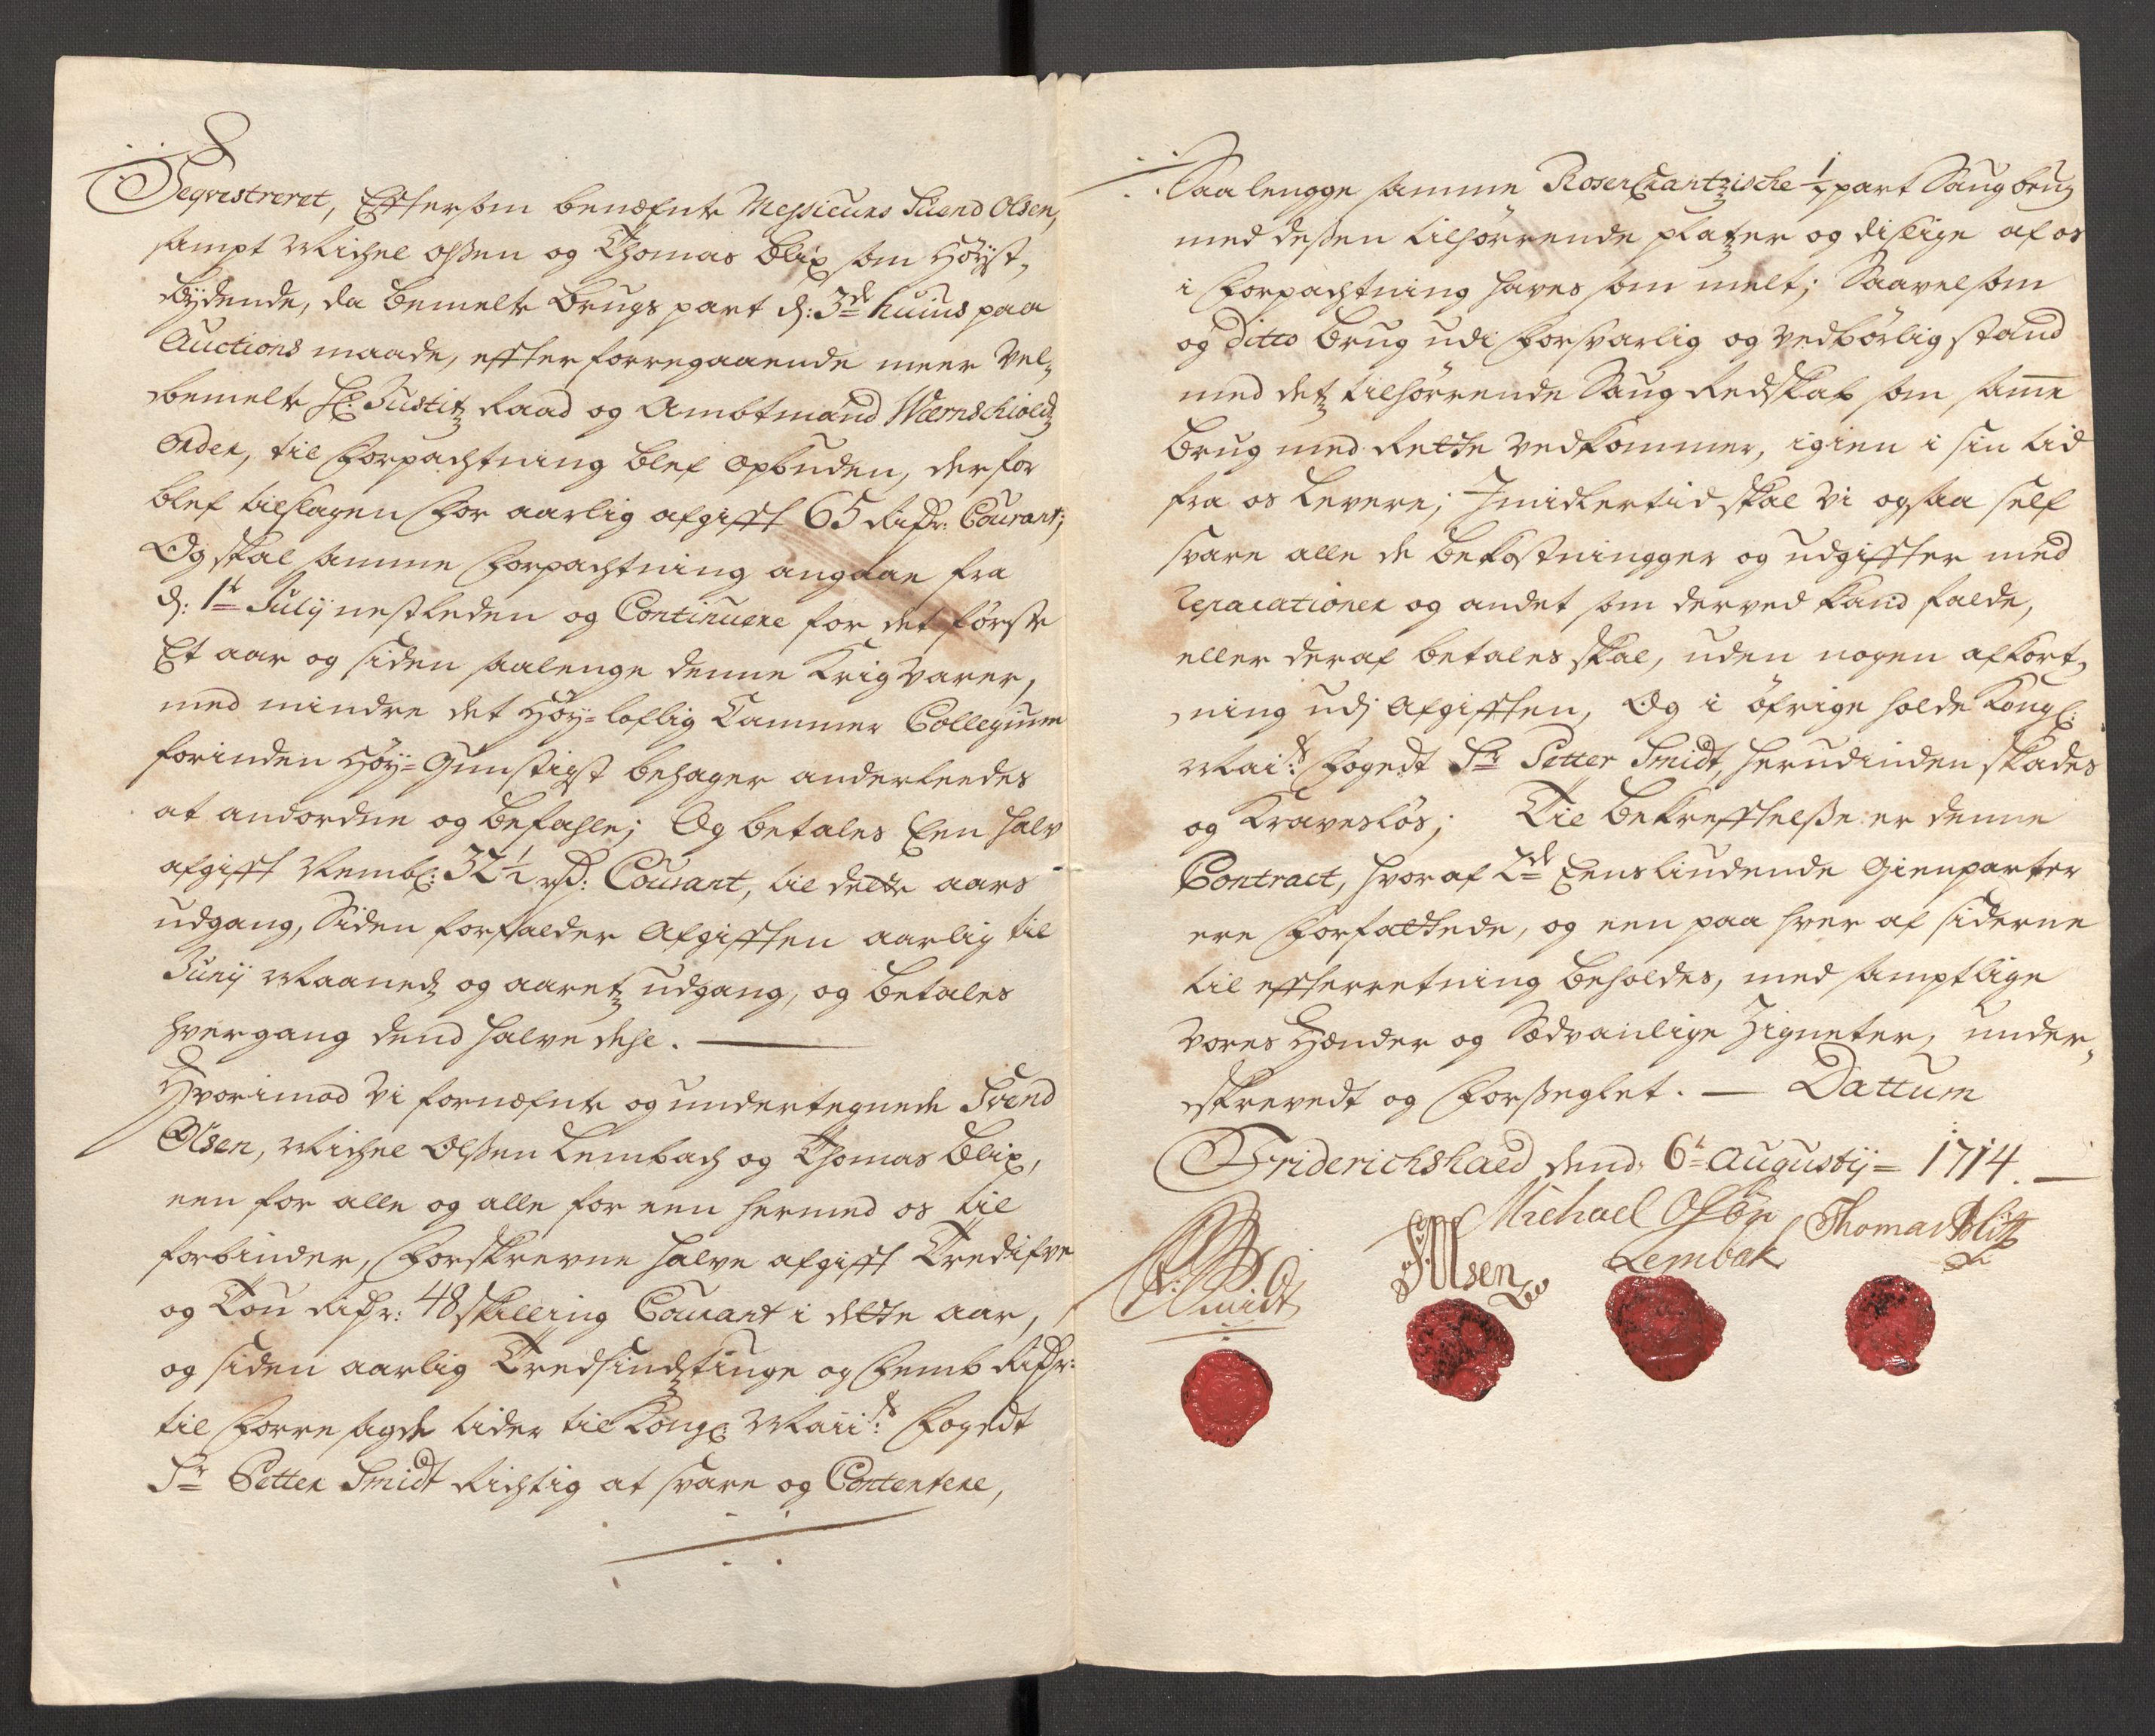 Seqvestreret, Eftersom benæfnte Messieurs Suend Olsen,
sampt Michel Olssen og Thomas Blix som Høyst-
bydende, da bemelte brugs part d: 3de huius paa
Auctions maade, effter forregaaende meer Vel-
bemelte Hr: Justitz Raad og Ambtmand Wærnschiolds
Order, til Forpachtning blef opbuden, derfor
blef tilslagen for aarlig afgifft 65 Rixdr: Courant;
Og skal samme Forpachtning angaae fra
d: 1te Julij nestleden og Continuere for det første
Et aar og siden saalenge denne Krig varer,
med mindre det Høy=loflig Cammer Collegium
forinden Høy=Gunstigst behager anderleedes
at anordne og befahle; Og betales Een halv
afgifft Nembl: 32½ rd: Courant, til dette aars
udgang, Siden forfalder Afgifften aarlig til
Junij Maanedz og aaretz udgang, og betales
hvergang dend halve dehl. —
Hvorimod Vi fornæfnte og undertegnede Svend
Olsen, Michel Olssen Lembach og Thomas Blix,
een for alle og alle for een hermed os til
forbinder, Forskrevne halve afgifft Tredifve
og Tou Rixdr: 48 skilling Courant i dette aar,
og siden aarlig Tredsindstiuge og Femb Rixdr:
til Forre sagde tider til Kongl: Maii:ts Fogedt
Sr Petter Smidt Richtig at svare og Contentere,
Saa lengge samme Rosencrantzische ½ part Saugbrug
med dessen tilhørrende platzer og dislige af os
i Forpachtning haves som melt; Saavelsom
og Ditto brug udi Forsvarlig og vedbørlig stand
med detz tilhørrende Saug Redskab som samme
brug med Rette vedkommer, igien i sin tid
fra os levere; Imidlertid skal Vi ogsaa self
svare alle de bekostningger og udgiffter med
Reparationer og andet som derved kand falde,
eller deraf betales skal, uden nogen afkort-
ning udj Afgifften, Og i øfrige holde Kongl:
Mai:ts Fogedt Sr Petter Smidt, herudinden skades
og Kravesløs; Til bekrefftelsse er denne
Contract, hvoraf 2de Eensliudende Gienparter
ere Forfattede, og een paa hver af siderne
til effterretning beholdes, med samptlige
vores Hænder og Sædvanlige Zigneter, under-
skrevedt og Forsseglet. — Dattum
Friderichshald dend 6te Augustij = 1714. —
Michael Olsøn Thomas Blix
Smidt SOlsen Lembak